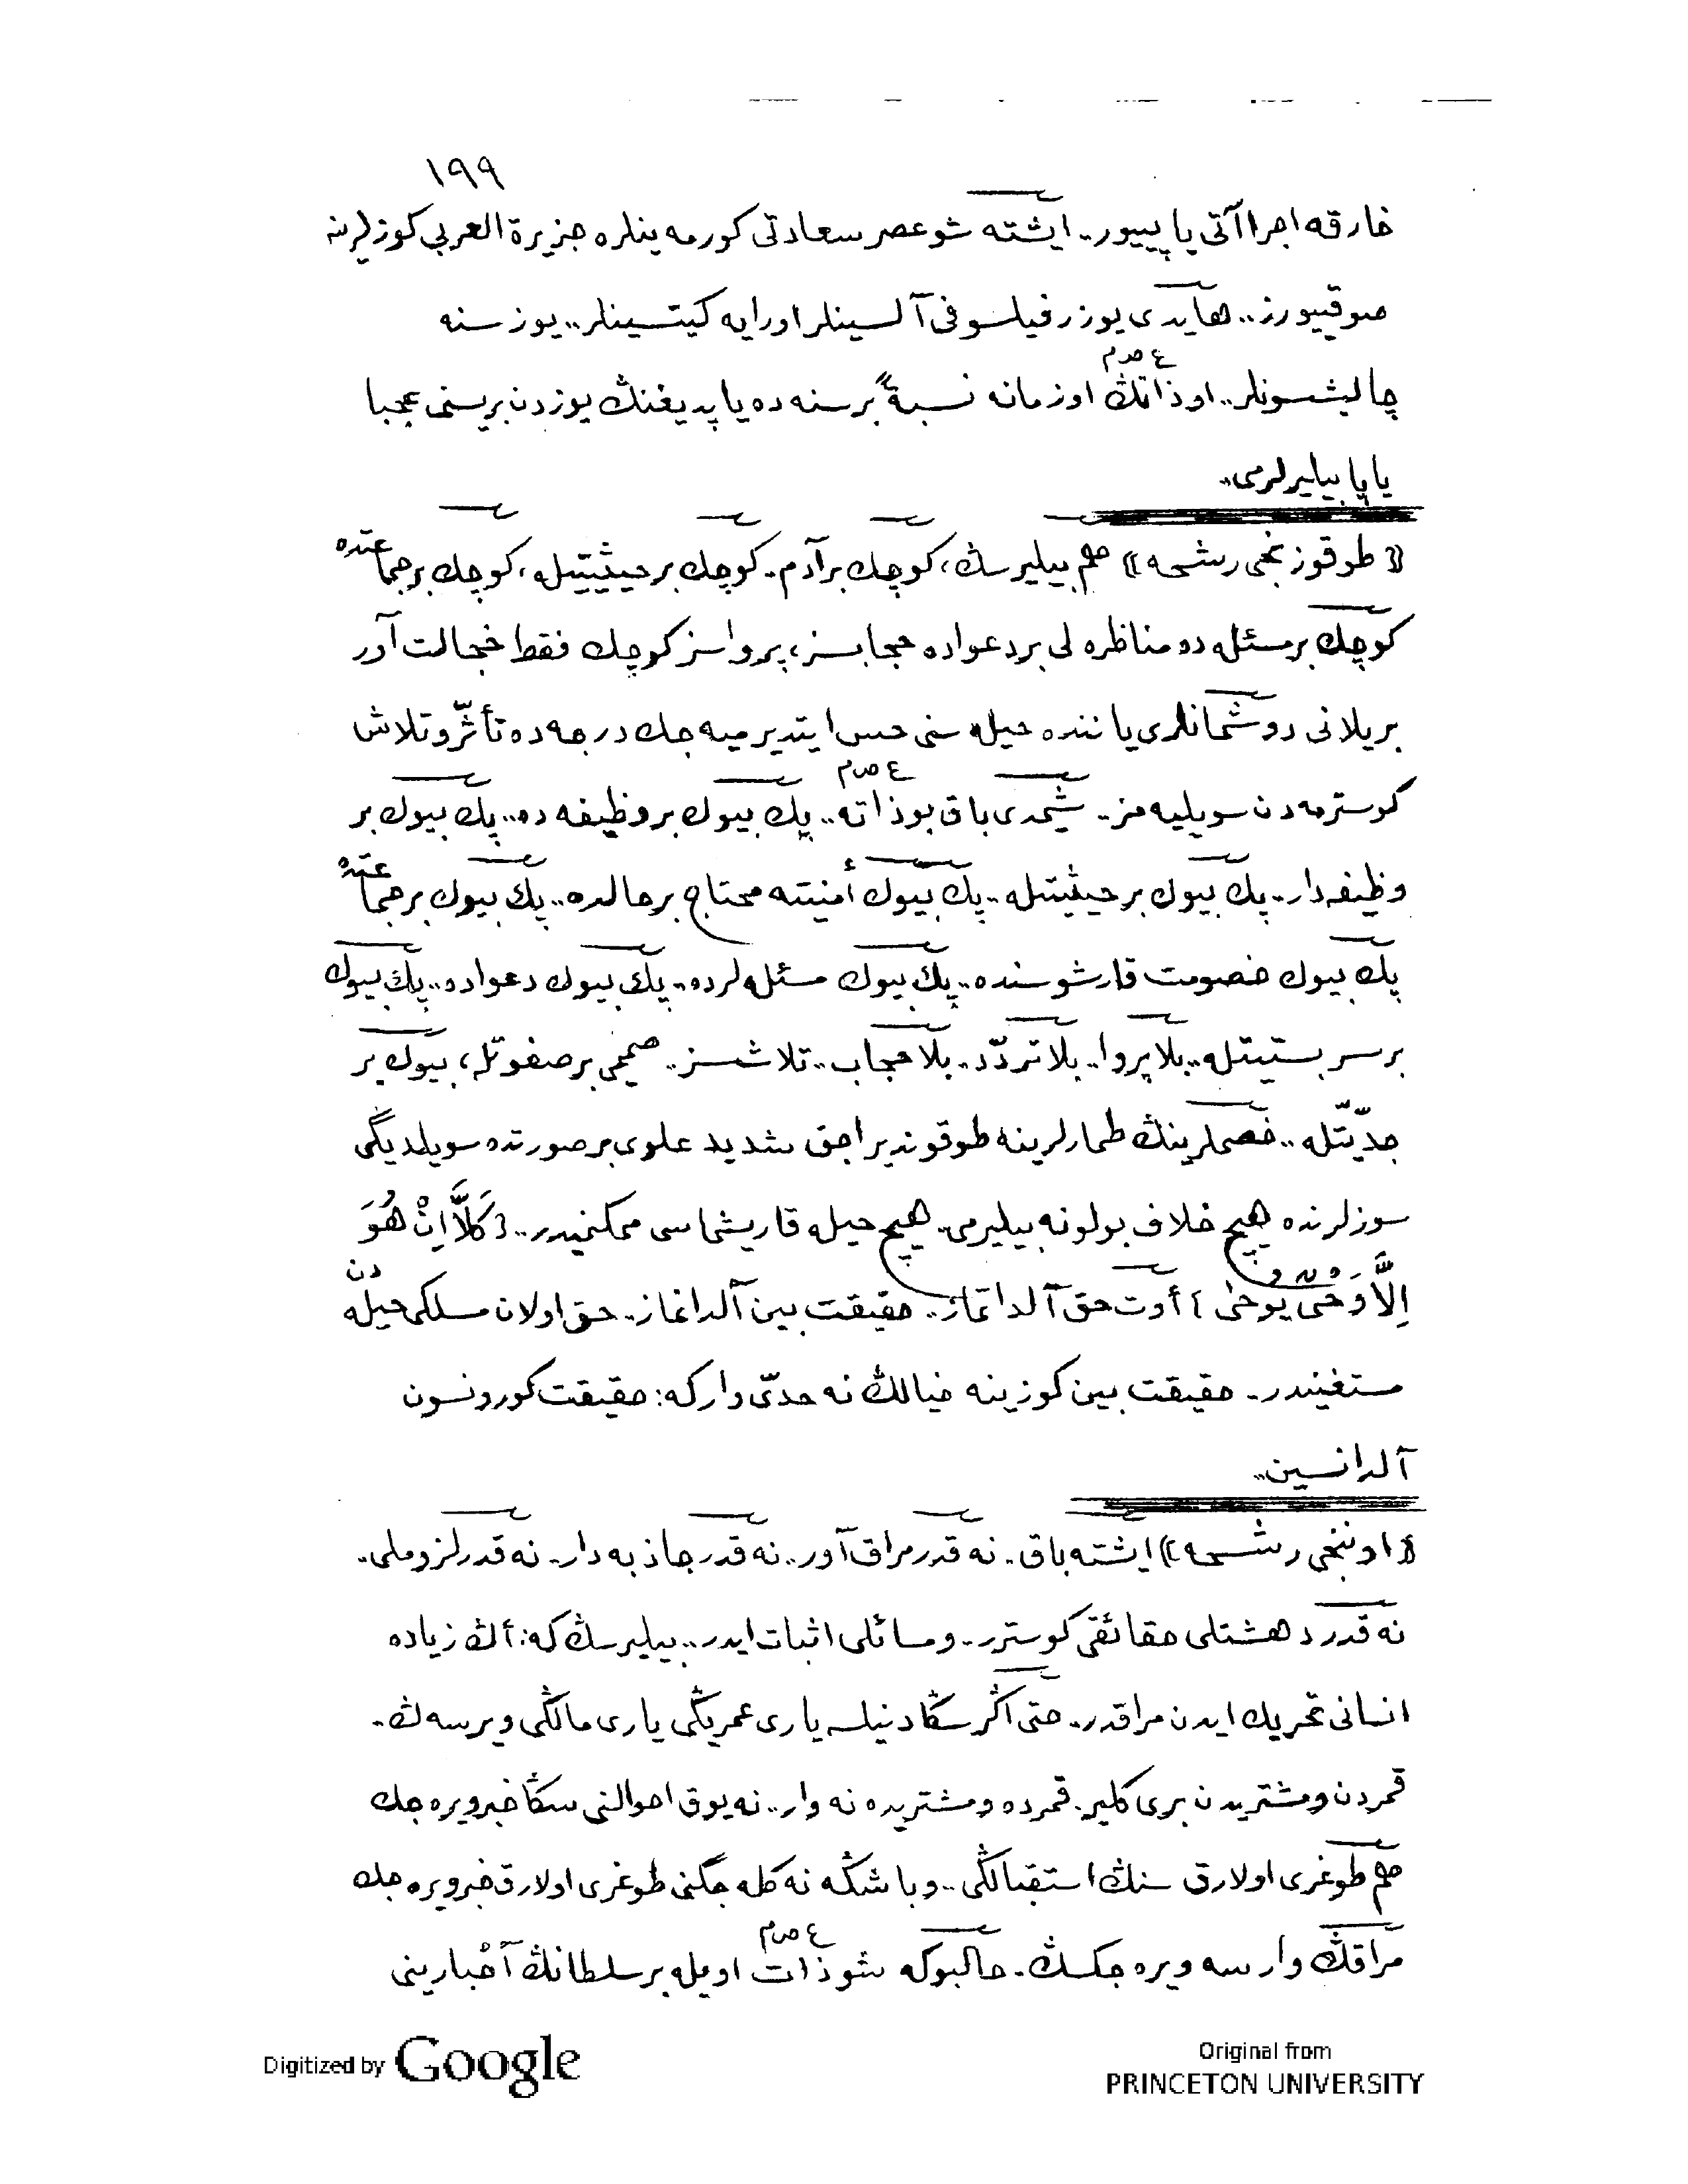 ١٩٩
خارقه اجراآتی یاپییور.. ایشته شو عصر سعادتی کورمه ینلره جزیرة العربی کوزلرینه
صوقییورز.. هایدی یوزر فیلسوفی آلسینلر اورایه کیتسینلر.. یوز سنه
ع ص م
چالیشسونلر.. او ذاتڭ او زمانه نسبةً بر سنه ده یاپدیغنڭ یوزدن بریسنی عجبا
یاپابیلیرلرمی..
﴿ طوقوزنجی رشحه ﴾ هم بیلیرسڭ، کوچك بر آدم. کوچك بر حیثیتیله، کوچك بر جماعتده
کوچك بر مسئله ده مناظره لی بر دعواده حجابسز، پرواسز کوچك فقط خجالت آور
بر یلانی دوشمانلری یاننده حیله سنی حس ایتدیرمیه جك درجه ده تأثّر و تلاش
ع ص م
کوسترمه دن سویلیه مز.. شیمدی باق بو ذاته.. پك بیوك بر وظیفه ده.. پك بیوك بر
وظیفه دار.. پك بیوك بر حیثیتله.. پك بیوك أمنیته محتاج بر حالده.. پك بیوك بر جماعتده
پك بیوك خصومت قارشوسنده.. پك بیوك مسئله لرده.. پك بیوك دعواده.. پك بیوك
بر سربستیتله.. بلا پروا.. بلا تردّد.. بلا حجاب.. تلاشسز.. صمیمی بر صفوتله، بیوك بر
جدّیّتله.. خصملرینڭ طمارلرینه طوقوندیراجق شدید علوی بر صورتده سویلدیگی
سوزلرنده هیچ خلاف بولونه بیلیرمی.. هیچ حیله قاریشماسی ممکنمیدر.. ﴿ كَلَّا اِنْ هُوَ
اِلَّا وَحْىٌ يُوحٰى ﴾ أوت حق آلداتماز.. حقیقت بین آلدانماز.. حق اولان مسلکی حیله دن
مستغنیدر.. حقیقت بین کوزینه خیالڭ نه حدّی وار که: حقیقت کورونسون
آلدانسین..
﴿ اوننجی رشحه ﴾ ایشته باق.. نه قدر مراق آور.. نه قدر جاذبه دار.. نه قدر لزوملی.
نه قدر دهشتلی حقائقی کوسترر.. و مسائلی اثبات ایدر.. بیلیرسڭ که: أڭ زیاده
انسانی تحریك ایدن مراقدر.. حتی اگر سڭا دنیلسه یاری عمریڭی یاری مالڭی ویرسه ڭ.
قمردن و مشتریدن بری کلیر. قمرده و مشتریده نه وار.. نه یوق احوالنی سڭا خبر ویره جك
هم طوغری اولارق سنڭ استقبالڭی.. و باشڭه نه کله جگنی طوغری اولارق خبر ویره جك
ع ص م
مراقڭ وارسه ویره جکسڭ.. حالبوکه شو ذات اویله بر سلطانڭ آخبارینی
Digitized by Google
Original from
PRINCETON UNIVERSITY